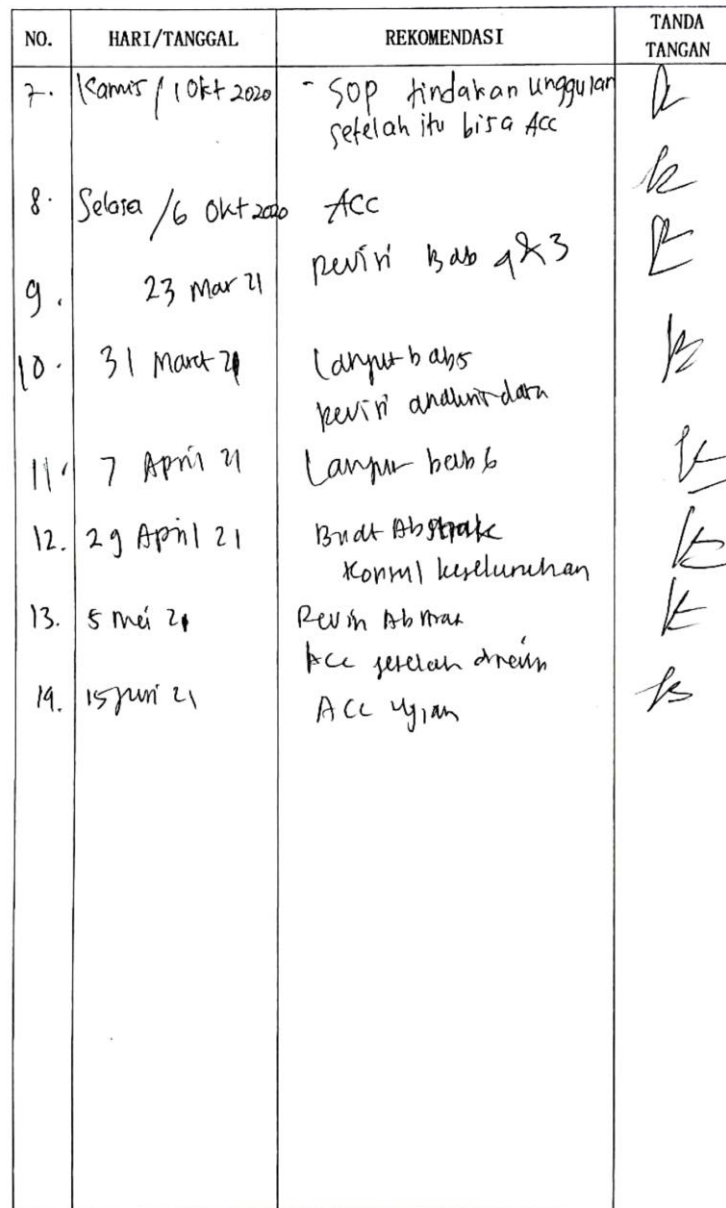 NO. HARI/TANGGAL REKOMENDASI TANDA TANGAN
7. Kamis / 1 Okt 2020 - SOP tindakan unggulan
setelah itu bisa Acc
8. Selasa / 6 Okt 2020 ACC
9. 23 Mar 21 Revisi Bab 4 & 3
10. 31 Maret 21 Lanjut bab 5
Revisi analisis data
11. 7 April 21 Lanjut bab 6
12. 29 April 21 Buat Abstrak
Konsul keseluruhan
13. 5 Mei 21 Revisi Abstrak
Acc setelah direvisi
14. 15 Juni 21 ACC Ujian